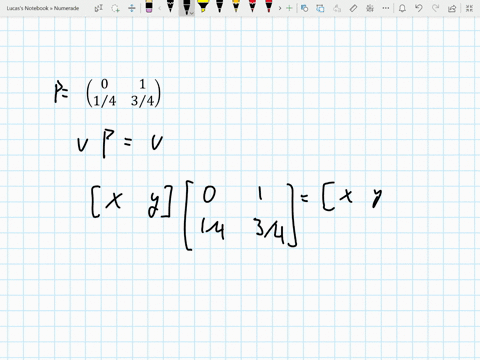 Lucas's Notebook » Numerade
P= ( 0 1
1/4 3/4 )
v P = v
[ x y ] [ 0 1
1/4 3/4 ] = [ x y